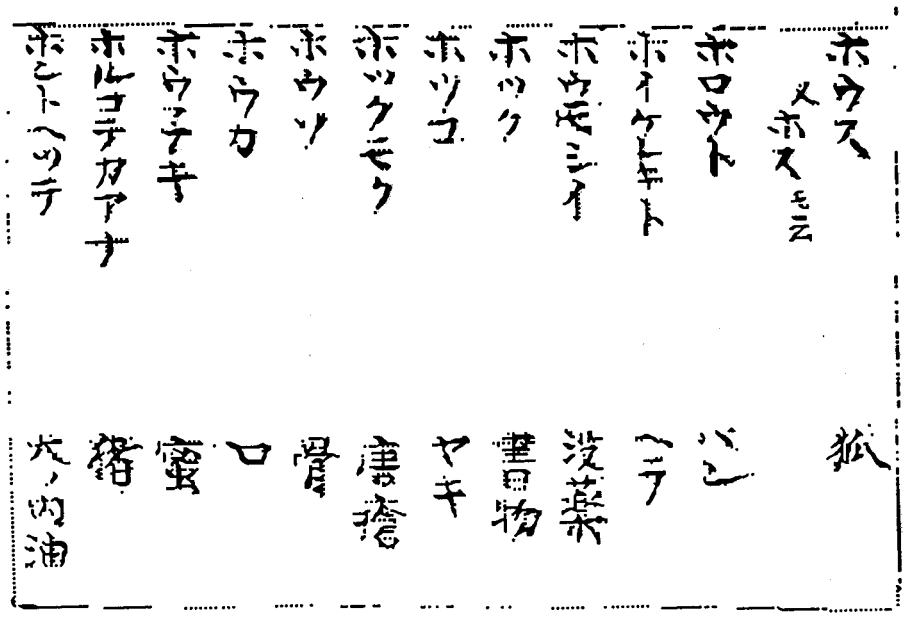 ホウス 狐
又ホスモ云
ホロウト パン
ホイケレキト ヘテ
ホウモシイ 没薬
ホック 書物
ホツコ ヤキ
ホックモク 唐猪
ホウツ 骨
ホウカ 口
ホウッテキ 蜜
ホルコテカアナ 猪
ホントヘツテ 犬ノ肉油